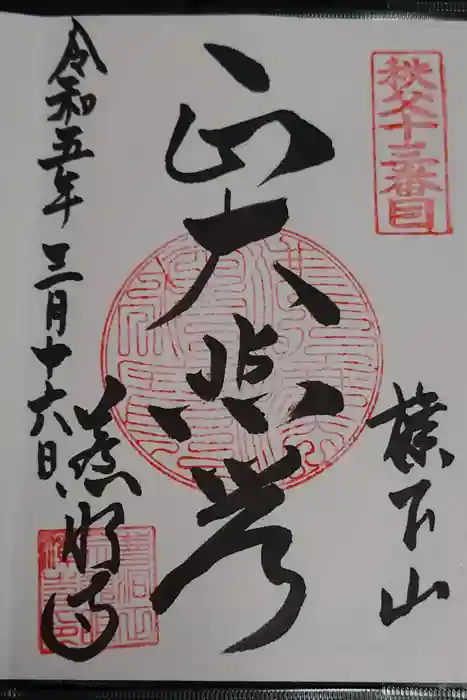 秩父十三番目
旗下山
正大悲者
慈眼寺
令和五年三月十六日